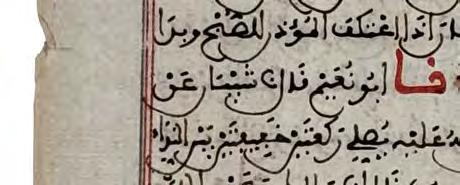 اذا اعتكف الموذن للصبح وبدا
نا ابو نعيم قال نا شيبان عن
عليه يصلي ركعتين خفيفتين بين النداء